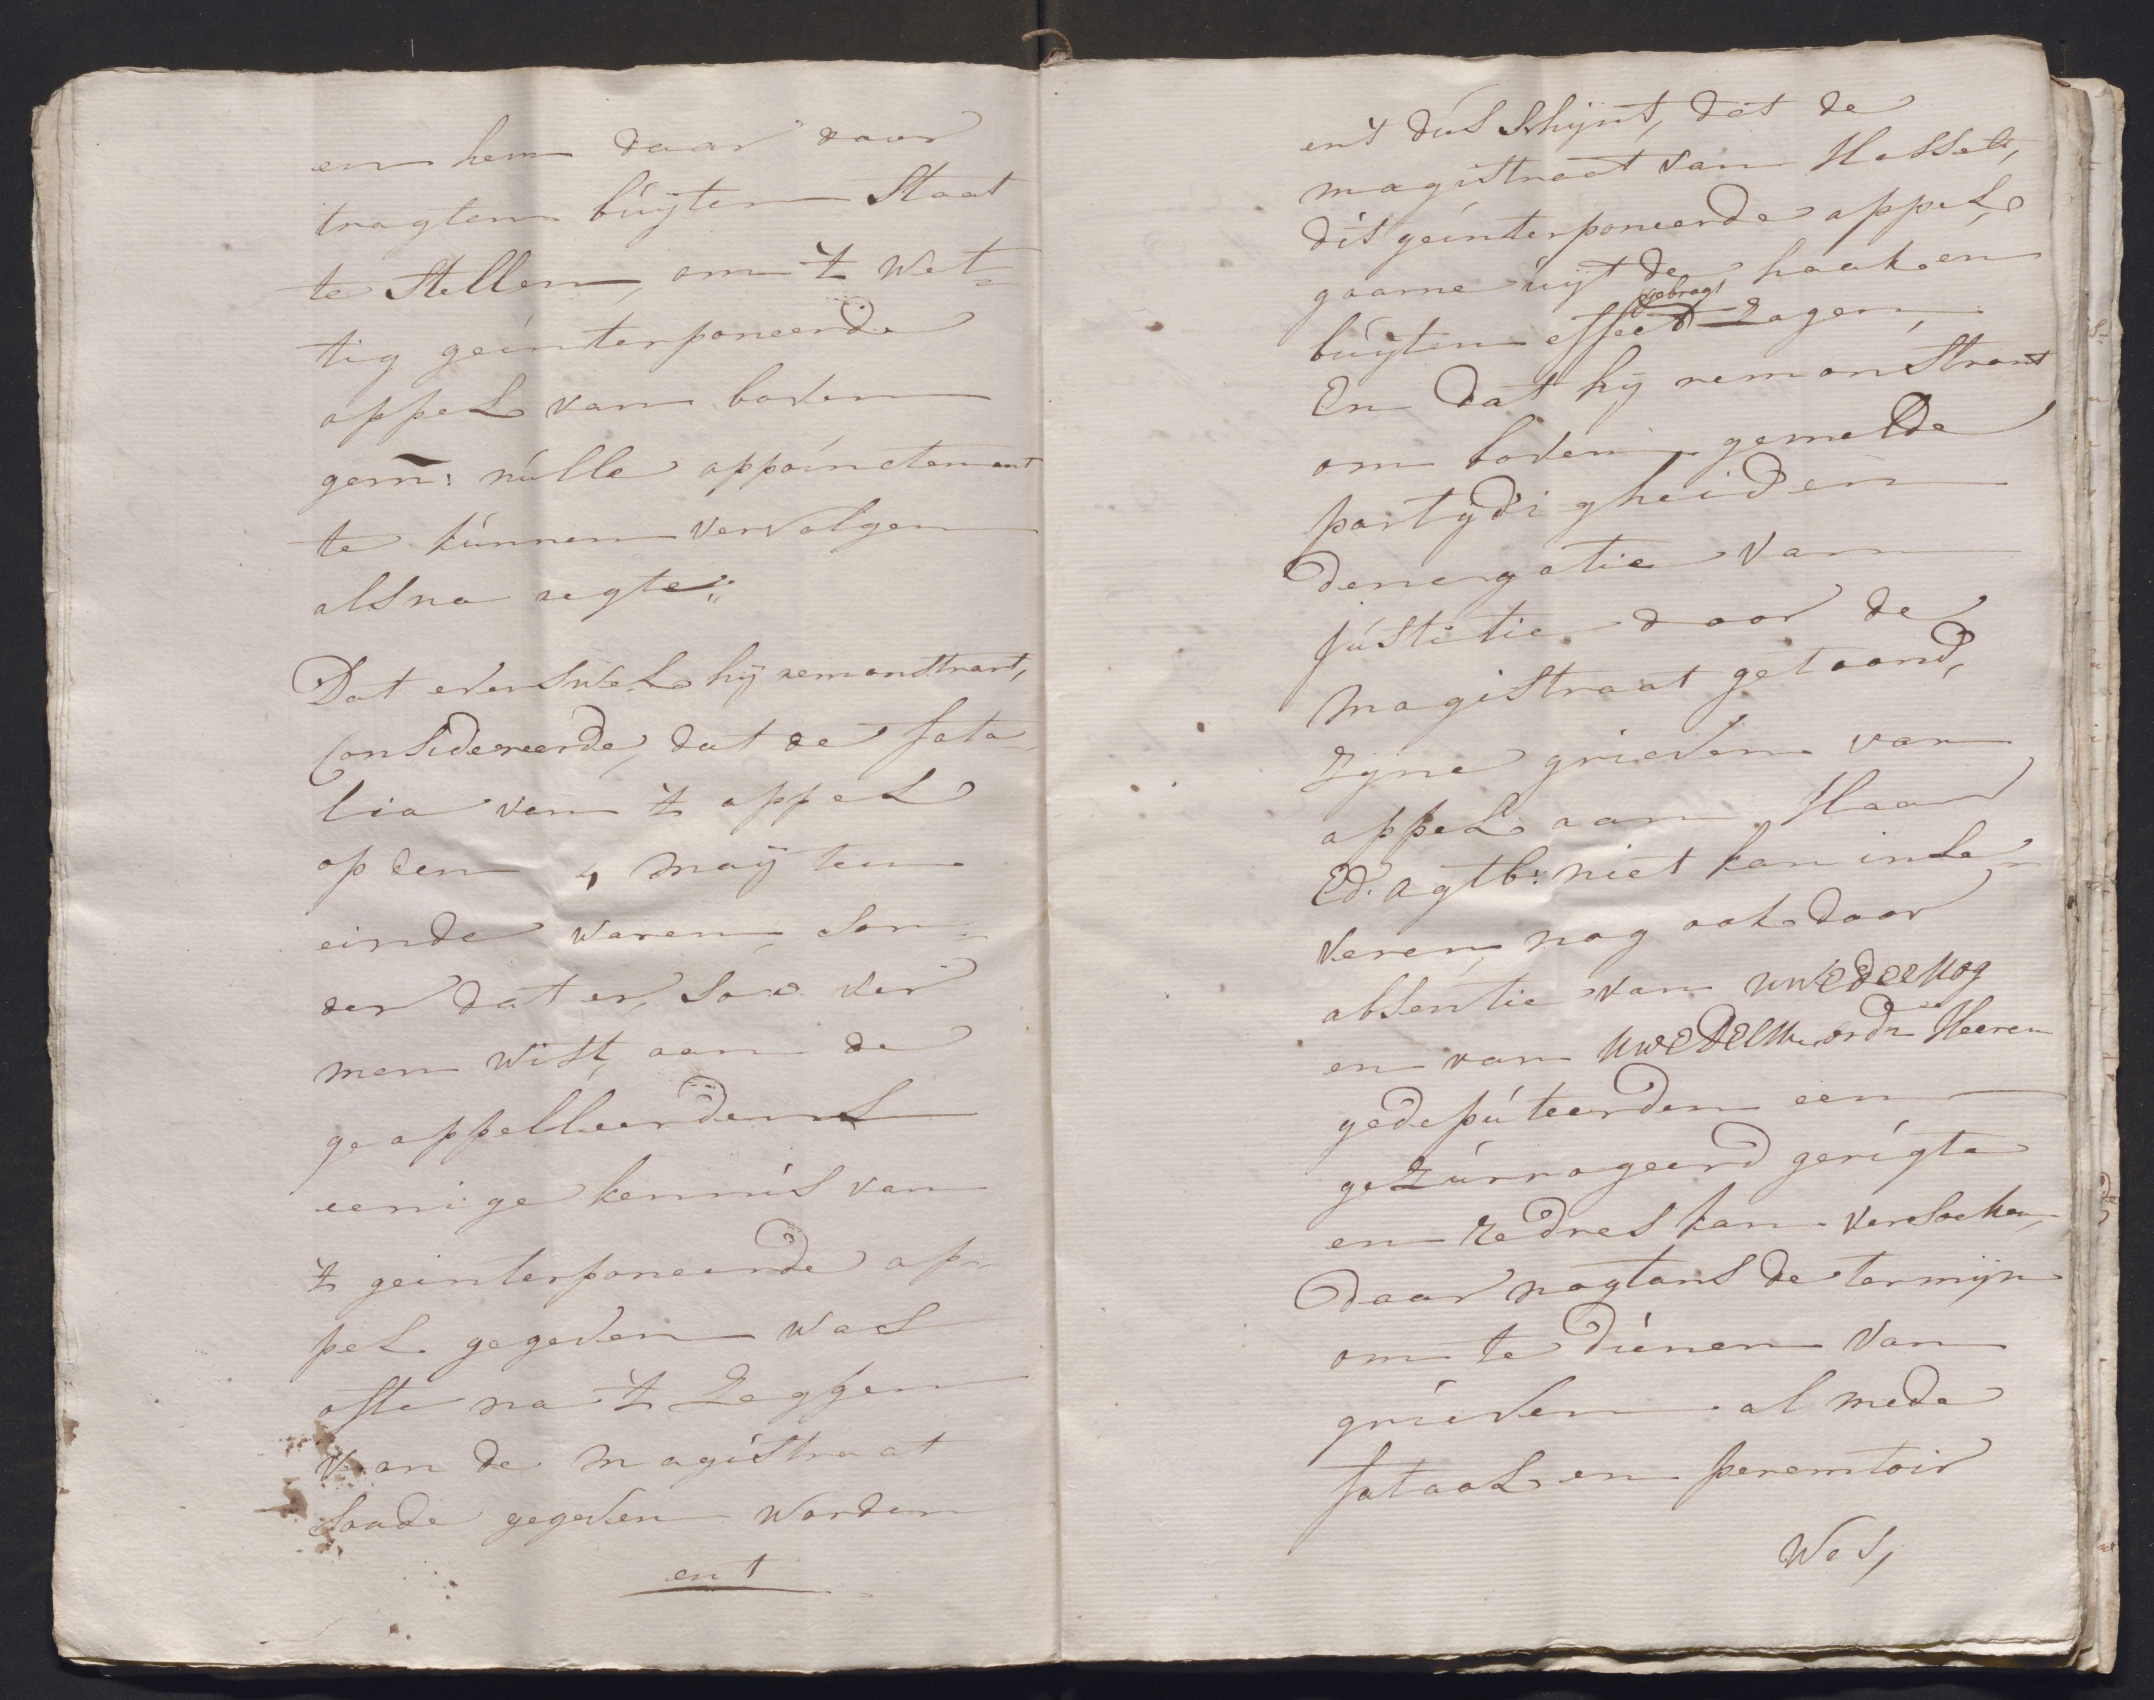 en hem daar door
tragten buÿten Staat
te Stellen, om 't wet=
tig geinterponeerde
appel van boven
gem: nulle appoinctement
te kunnen vervolgen
als na regte;
Dat evenswel hij remonstrant,
Considereerde, dat de fata
lia van 't appel
op den 4 maÿ ten
einde waren, son=
der dat er, soo ver
men wist, aan de
geappelleerdens
eenige kennis van
't geinterponeerde ap=
pel gegeven was
ofte na 't Zeggen
van de magistraat
soude gegeven worden
en 't
en 't dus schijnt, dat de
magistraat van Hasselt,
dit geinterponeerde appel
gaarne uijt de haak en
gebragt
buÿten effect zagen,
En dat hij remonstrant
om boven gemelde
partÿdigheiden
denegatie van
justitie door de
magistraat getoond,
zijne grieven van
appel aan Haar
Ed: Agtb: niet kan inle=
veren, nog ook door
absentie van uwEdeeHog
en van uwEdelM. ordn Heeren
gedeputeerden een
gezurrogeerd gerigte
en redres kan versoeken,
daar nogtans de termijn
om te dienen van
grieven al mede
fataal en peremtoir
Was,